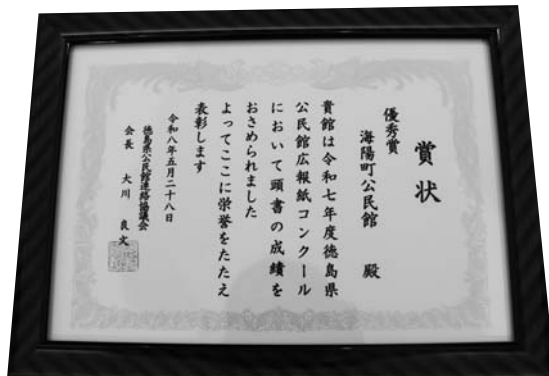 賞状
優秀賞
海陽町公民館 殿
貴館は令和七年度徳島県
公民館広報紙コンクール
において頭書の成績を
おさめられました
よってここに栄誉をたたえ
表彰します
令和八年五月二十八日
徳島県公民館連絡協議会
会長 大川 良文